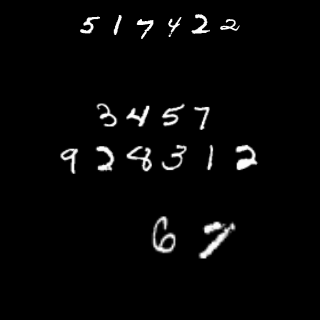 517422
3457
928312
67